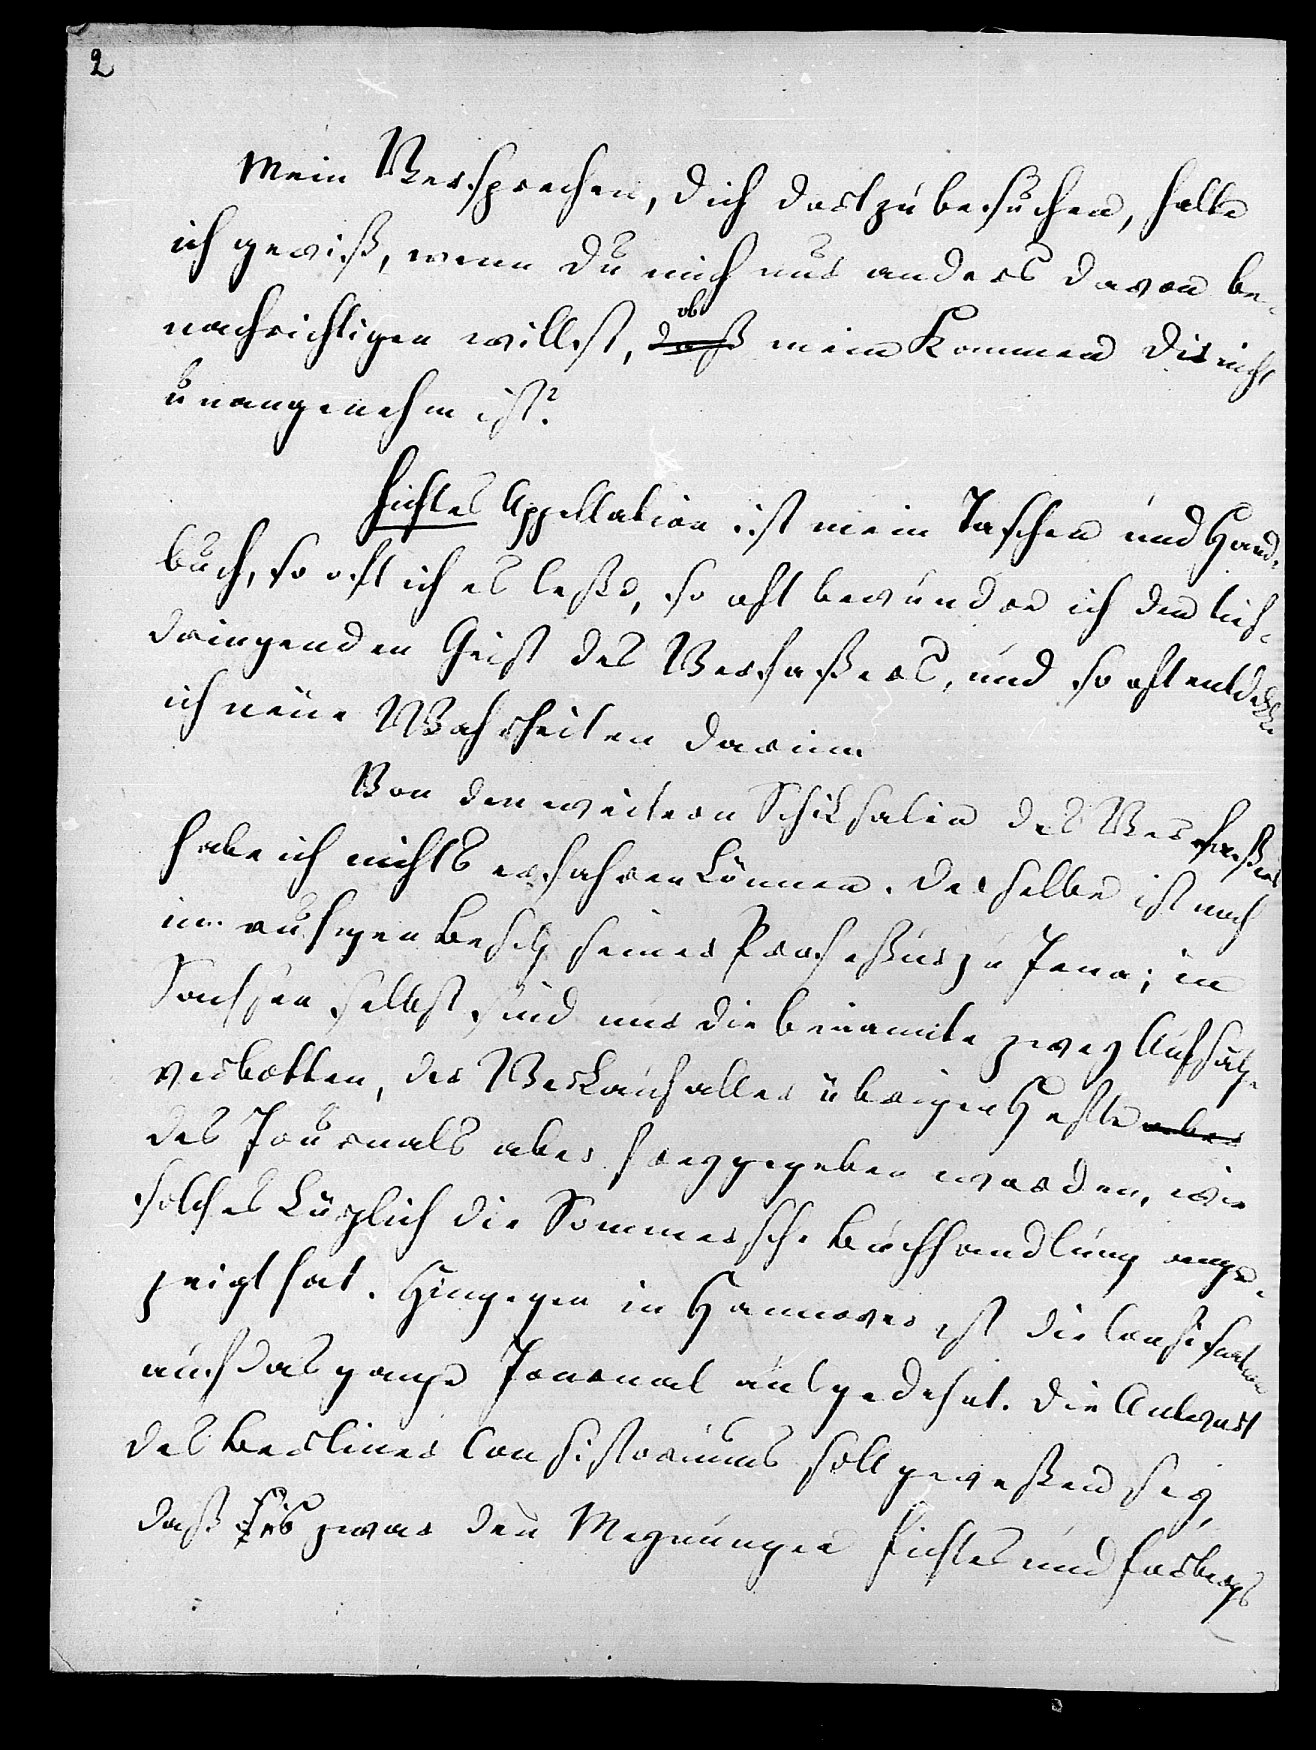 2
Mein Versprechen, dich dort zu besuchen, halte
ich gewiß, wenn du mich nur anders davon be-
nachrichtigen willst, daß ob mein Kommen dir nicht
unangenehm ist?
Fichtes Appellation ist mein Taschen und Hand-
buch, so oft ich es leße, so oft bewundre ich den tief-
dringenden Geist des Verfaßers, und so oft entdekke
ich neue Wahrheiten darinn.
Von den weitern Schiksalen des Verfaßers
habe ich nichts erfahren können. Derselbe ist noch
im ruhigen Besitz seiner Profeßur zu Jena; in
Sachsen selbst sind nur die benannte zwey Aufsätze
verbotten, der Verkauf aller übrigen Hefte aber
des Journals aber freygegeben worden, wie
solches kürzlich die Sommersche Buchhandlung ange-
zeigt hat. Hingegen in Hannover ist die Confiskation
auf das ganze Journal ausgedehnt. Die Antwort
des Berliner Consistoriums soll geweßen sey,
daß zwar den Meynungen Fichtes und Forbergs